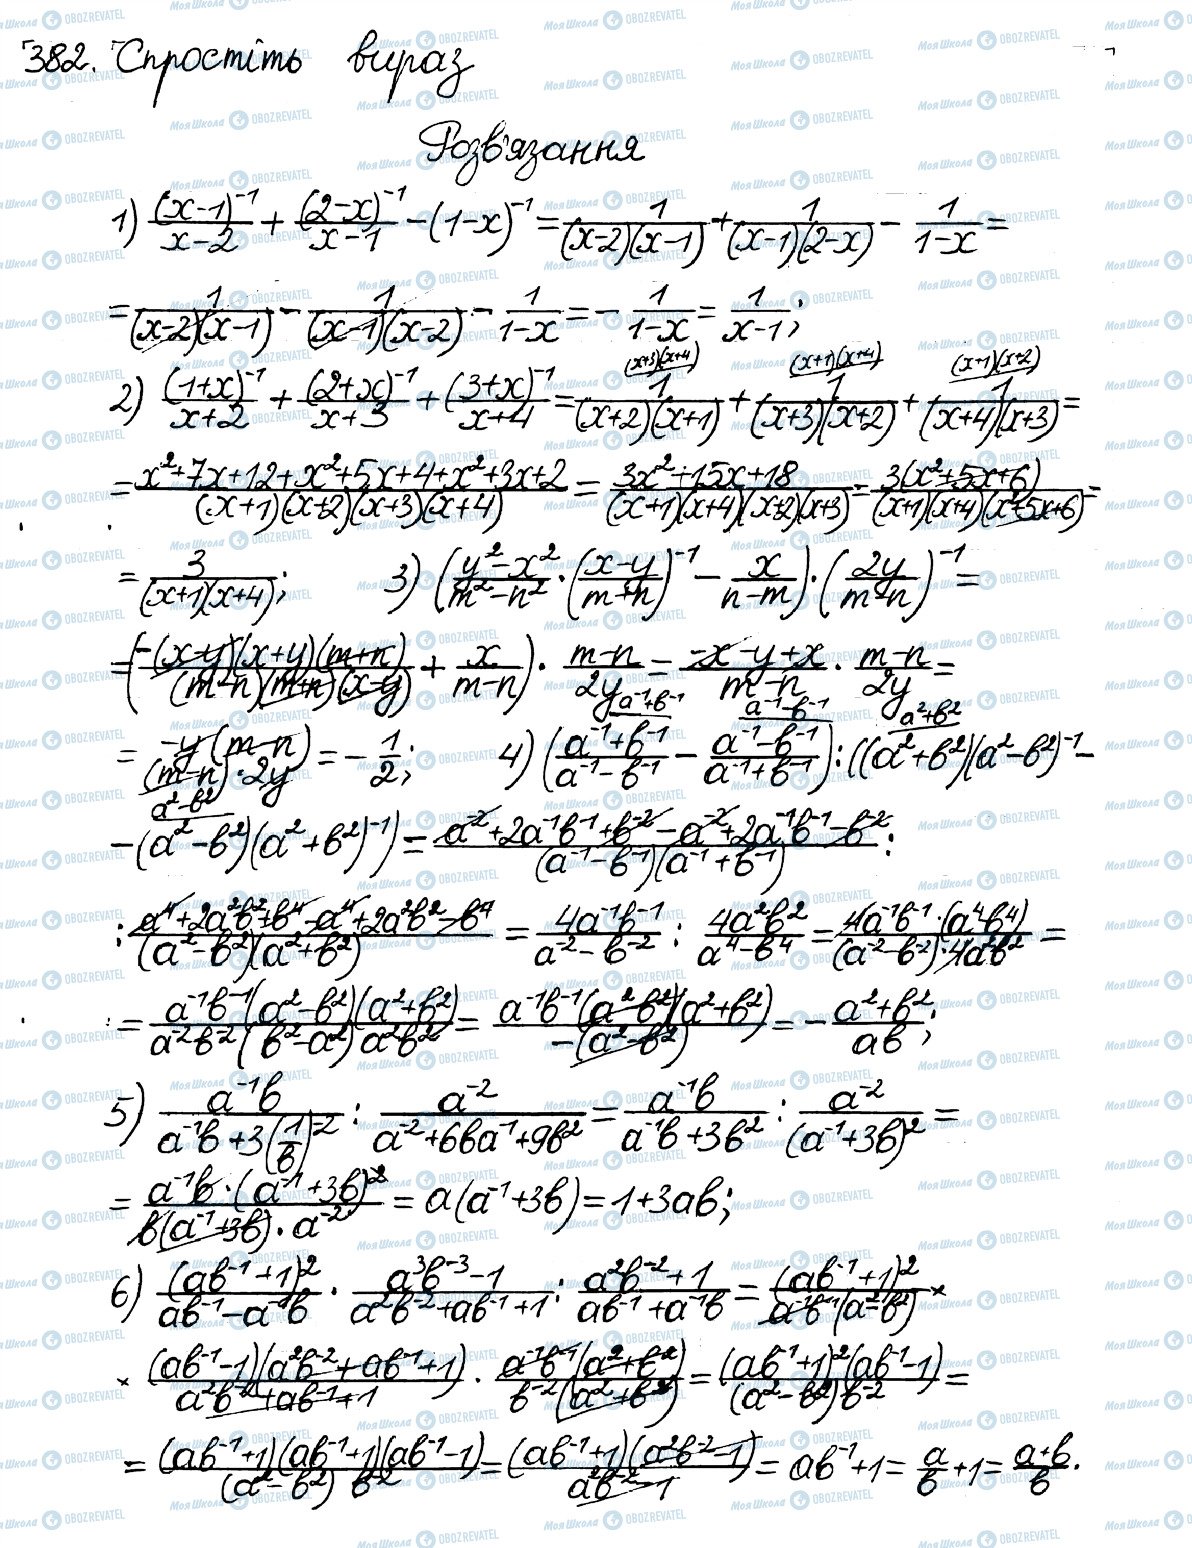 382. Спростіть вираз
Розв'язання
1) (x-1)^-1/(x-2) + (2-x)^-1/(x-1) - (1-x)^-1 = 1/((x-2)(x-1)) + 1/((x-1)(2-x)) - 1/(1-x) =
= 1/((x-2)(x-1)) - 1/((x-1)(x-2)) - 1/(1-x) = - 1/(1-x) = 1/(x-1);
2) (1+x)^-1/(x+2) + (2+x)^-1/(x+3) + (3+x)^-1/(x+4) = 1/((x+2)(x+1)) (x+3)(x+4) + 1/((x+3)(x+2)) (x+1)(x+4) + 1/((x+4)(x+3)) (x+1)(x+2) =
= (x^2+7x+12+x^2+5x+4+x^2+3x+2)/((x+1)(x+2)(x+3)(x+4)) = (3x^2+15x+18)/((x+1)(x+4)(x+2)(x+3)) = 3(x^2+5x+6)/((x+1)(x+4)(x^2+5x+6)) =
= 3/((x+1)(x+4)); 3) ((y^2-x^2)/(m^2-n^2) · ((x-y)/(m+n))^-1 - x/(n-m)) · (2y/(m-n))^-1 =
= (-(x-y)(x+y)(m+n)/((m-n)(m+n)(x-y)) + x/(m-n)) · (m-n)/2y = (-x-y+x)/(m-n) · (m-n)/2y =
= -y(m-n)/((m-n)·2y) = - 1/2; 4) ((a^-1+b^-1)/(a^-1-b^-1) a^-1+b^-1 - (a^-1-b^-1)/(a^-1+b^-1) a^-1-b^-1) : ((a^2+b^2)(a^2-b^2)^-1 a^2+b^2 -
- (a^2-b^2)(a^2+b^2)^-1 a^2-b^2) = (a^-2+2a^-1b^-1+b^-2-a^-2+2a^-1b^-1-b^-2)/((a^-1-b^-1)(a^-1+b^-1)) :
: (a^4+2a^2b^2+b^4-a^4+2a^2b^2-b^4)/((a^2-b^2)(a^2+b^2)) = 4a^-1b^-1/(a^-2-b^-2) : 4a^2b^2/(a^4-b^4) = 4a^-1b^-1·(a^4b^4)/((a^-2-b^-2)·4a^2b^2) =
= a^-1b^-1(a^2-b^2)(a^2+b^2)/(a^2b^-2(b^2-a^2)a^2b^2) = a^-1b^-1(a^2-b^2)(a^2+b^2)/(-(a^2-b^2)) = - (a^2+b^2)/ab;
5) a^-1b/(a^-1b+3(1/b)^-2) : a^-2/(a^-2+6ba^-1+9b^2) = a^-1b/(a^-1b+3b^2) : a^-2/(a^-1+3b)^2 =
= a^-1b·(a^-1+3b)^2/(b(a^-1+3b)·a^-2) = a(a^-1+3b) = 1+3ab;
6) (ab^-1+1)^2/(ab^-1-a^-1b) · (a^3b^-3-1)/(a^2b^-2+ab^-1+1) : (a^2b^-2+1)/(ab^-1+a^-1b) = (ab^-1+1)^2/(a^-1b^-1(a^2-b^2)) ×
× (ab^-1-1)(a^2b^-2+ab^-1+1)/(a^2b^-2+ab^-1+1) · a^-1b^-1(a^2+b^2)/(b^-2(a^2+b^2)) = (ab^-1+1)^2(ab^-1-1)/((a^2-b^2)b^-2) =
= (ab^-1+1)(ab^-1+1)(ab^-1-1)/((a^2-b^2)b^-2) = (ab^-1+1)(a^2b^-2-1)/(a^2b^-2-1) = ab^-1+1 = a/b+1 = (a+b)/b.